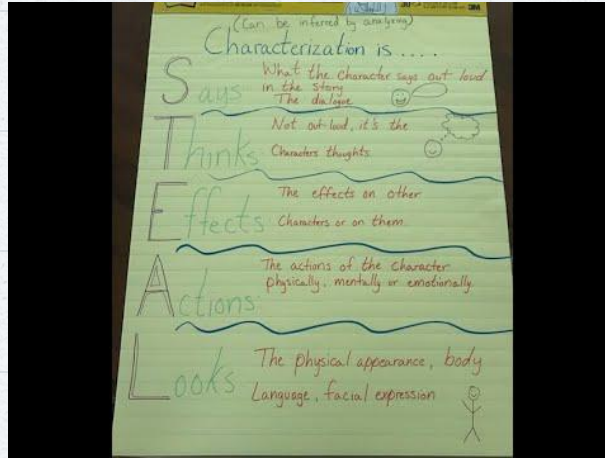 3M
(Can be inferred by analyzing)
Characterization is ....
Says What the character says out loud
in the story
The dialogue
Thinks Not out-loud, it's the
Characters thoughts
Effects The effects on other
Characters or on them
Actions The actions of the character
physically, mentally or emotionally.
Looks The physical appearance, body
Language, facial expression